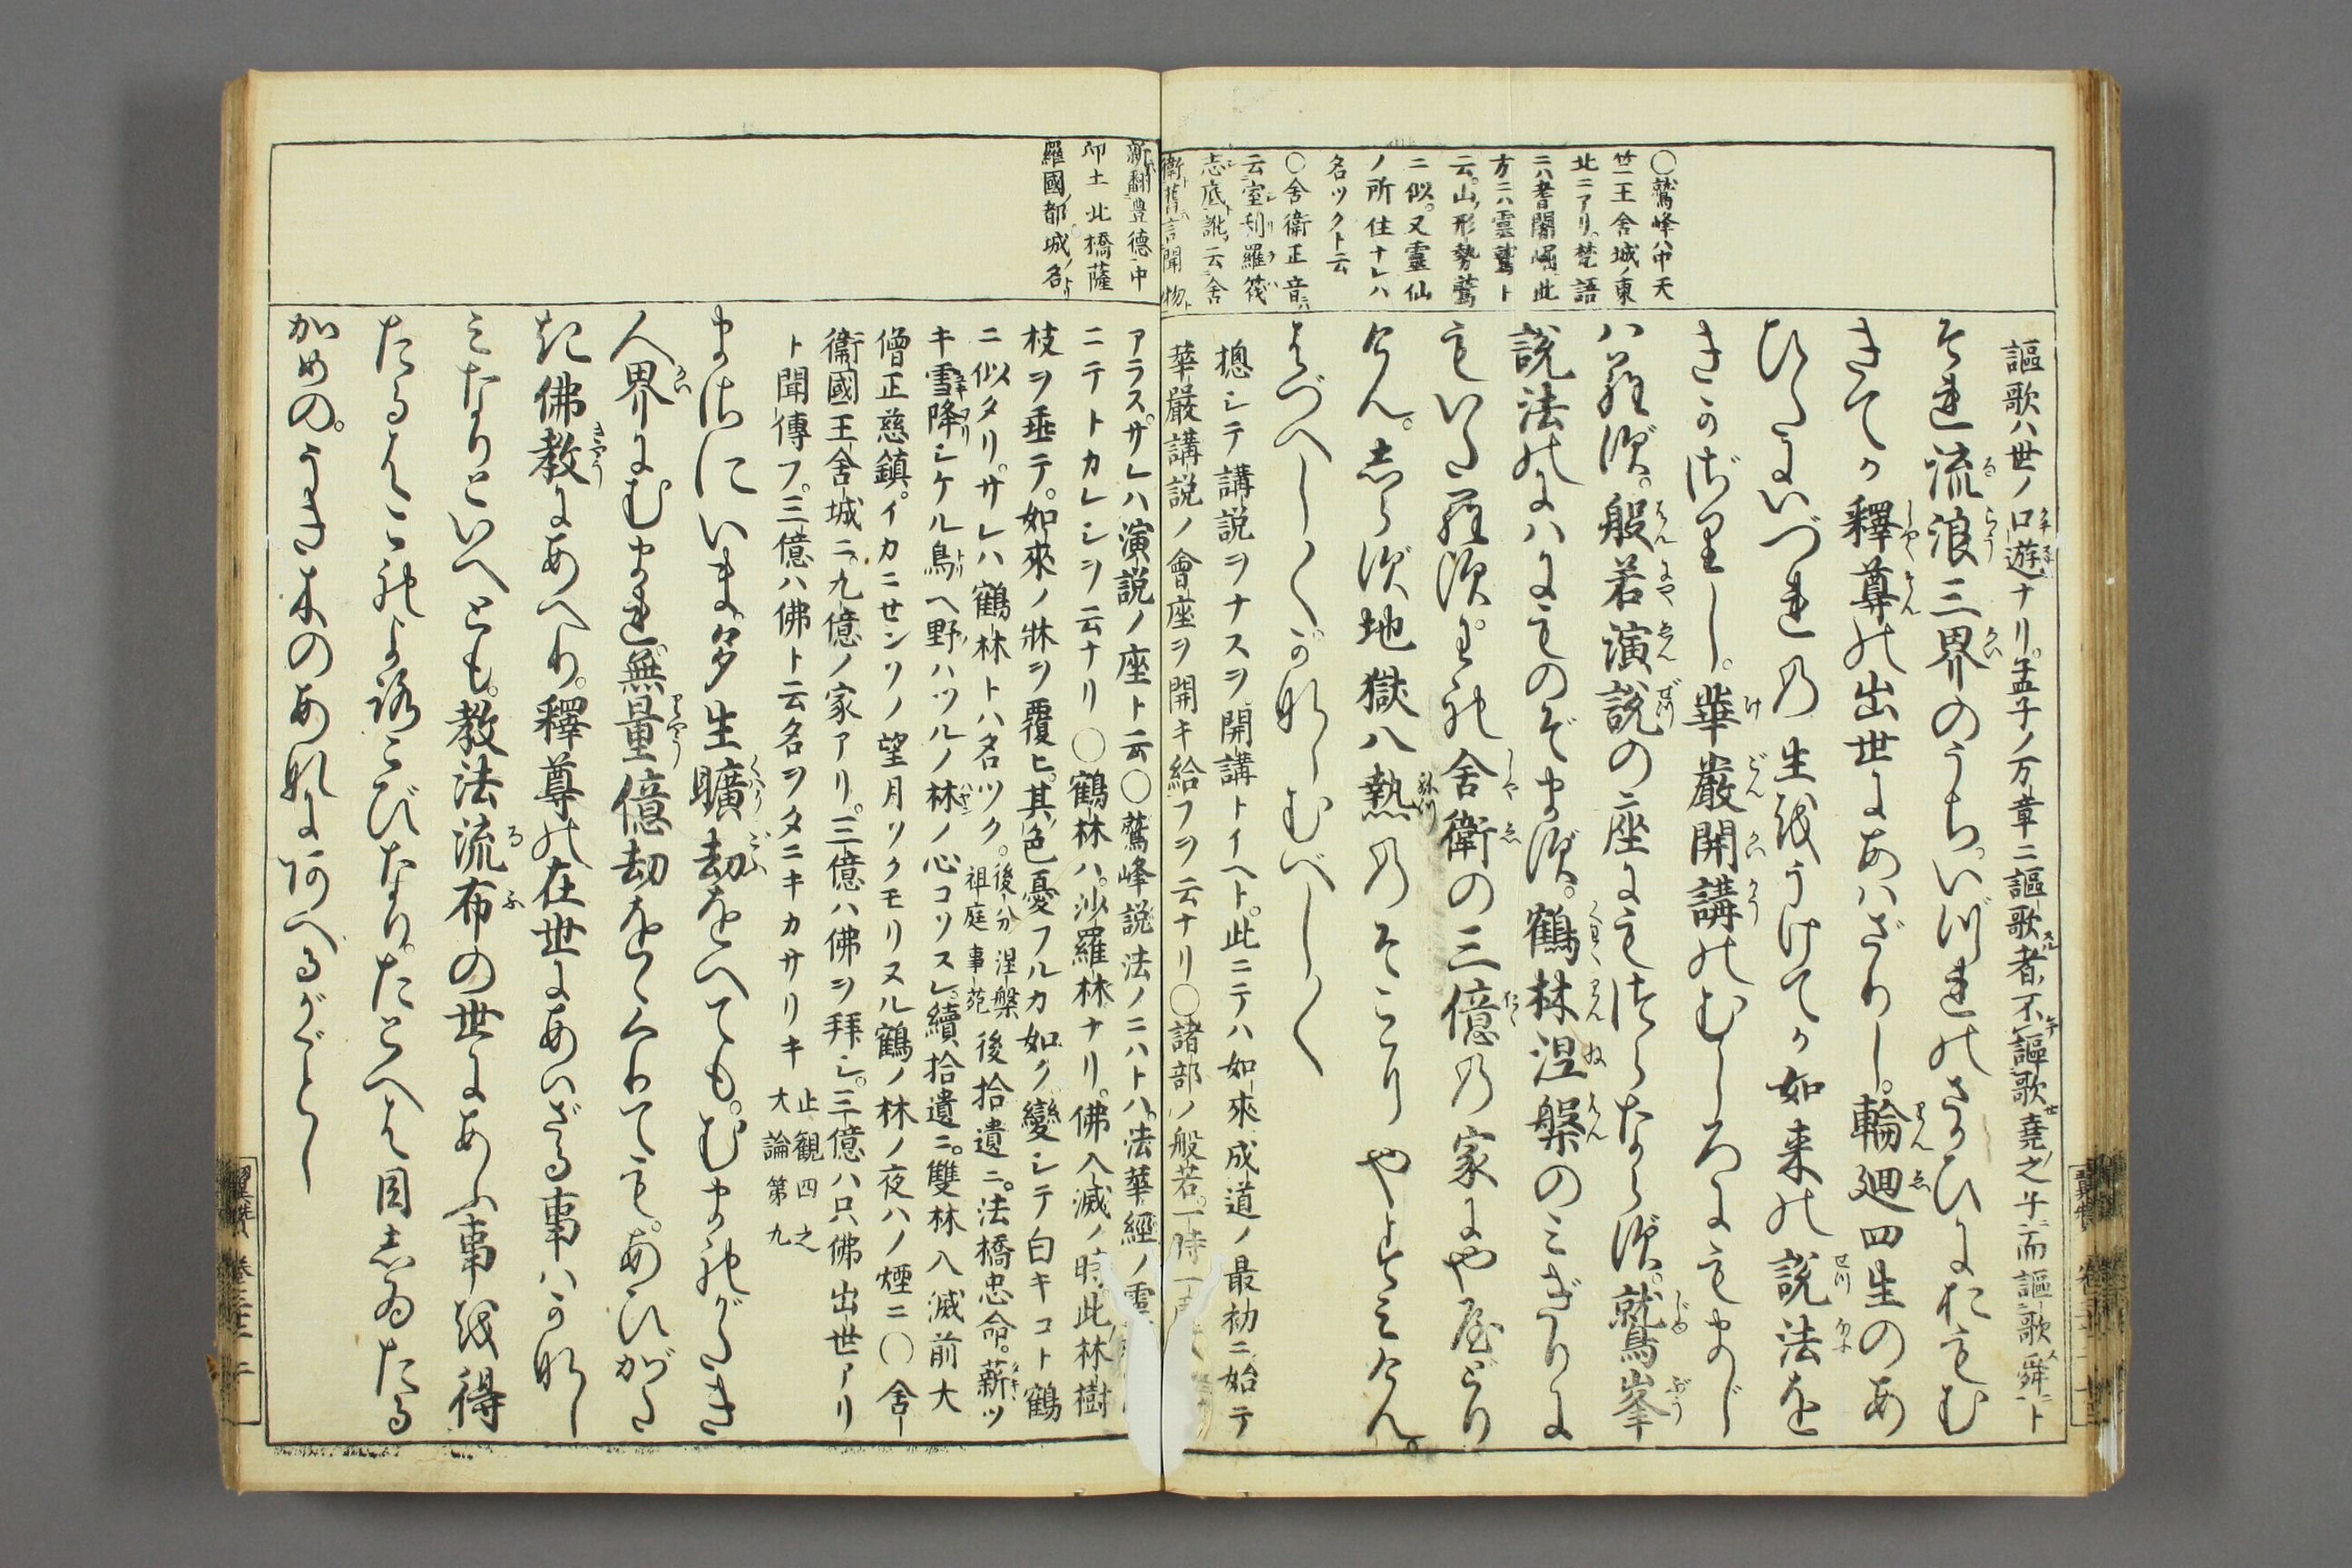 謳歌ハ世ノ口遊ナリ。孟子ノ万章ニ謳歌者不謳歌堯之子而謳歌舜ト
それ流浪三界のうち。いづれのさかひにおもむ
きてか釋尊の出世にあはざりし。輪廻四生のあ
ひだにいづれの生をうけてか如来の説法を
きかざりし。華嚴開講のむしろにもまじ
はらず。般若演説の座にもつらならず。鷲峯
説法のにはにものぞまず。鶴林涅槃のみぎりに
もいたらず。われ舎衛の三億の家にややどり
けん。しらず地獄八熱のそこにやすみけん。
はづべし〱。かなしむべし〱
惣シテ講説ヲナスヲ開講トイヘト。此ニテハ如來成道ノ最初ニ始テ
華嚴講説ノ會座ヲ開キ給フヲ云ナリ〇諸部ノ般若。一時一
〇鷲峰ハ中天
竺王舎城ノ東
北ニアリ。梵語
ニハ耆闍崛此
方ニハ靈鷲ト
云。山ノ形勢鷲
ニ似。又靈仙
ノ所住ナレハ
名ツクト云
〇舎衛正音ハ
云室利羅筏
悉底訛云舎
衛舊言聞物
新翻豊德中
印土北橋薩
羅國都城名
アラス。サレハ演説ノ座ト云〇鷲峰説法ノニハトハ。法華經ノ靈
ニテトカレシヲ云ナリ〇鶴林ハ。沙羅林ナリ。佛入滅ノ時。此林樹
枝ヲ垂テ。如來ノ牀ヲ覆ヒ。其色憂フルカ如ク變シテ白キコト鶴
ニ似タリ。サレハ鶴林トハ名ツク。後分涅槃祖庭事苑後拾遺ニ。法橋忠命。薪ツ
キ雪降シケル鳥ヘ野ハツルノ林ノ心コソスレ。續拾遺ニ。雙林入滅前大
僧正慈鎮。イカニセンソノ望月ソクモリヌル鶴ノ林ノ夜ハノ煙ニ〇舎
衛國王舍城ニ。九億ノ家アリ。三億ハ佛ヲ拜シ。三億ハ只佛出世アリ
ト聞傳フ。三億ハ佛ト云名ヲタニキカサリキ止観四之大論第九
まさにいま。多生曠劫をへても。むまれがたき
人界にむまれ。無量億劫ををくりても。あひがた
き佛教にあへり。釋尊の在世にあはざる事はかなし
みなりといへども。教法流布の世にあふ事を得
たるはこれよろこびなり。たとへば目しゐたる
かめの。うき木のあなにあへるがごとし